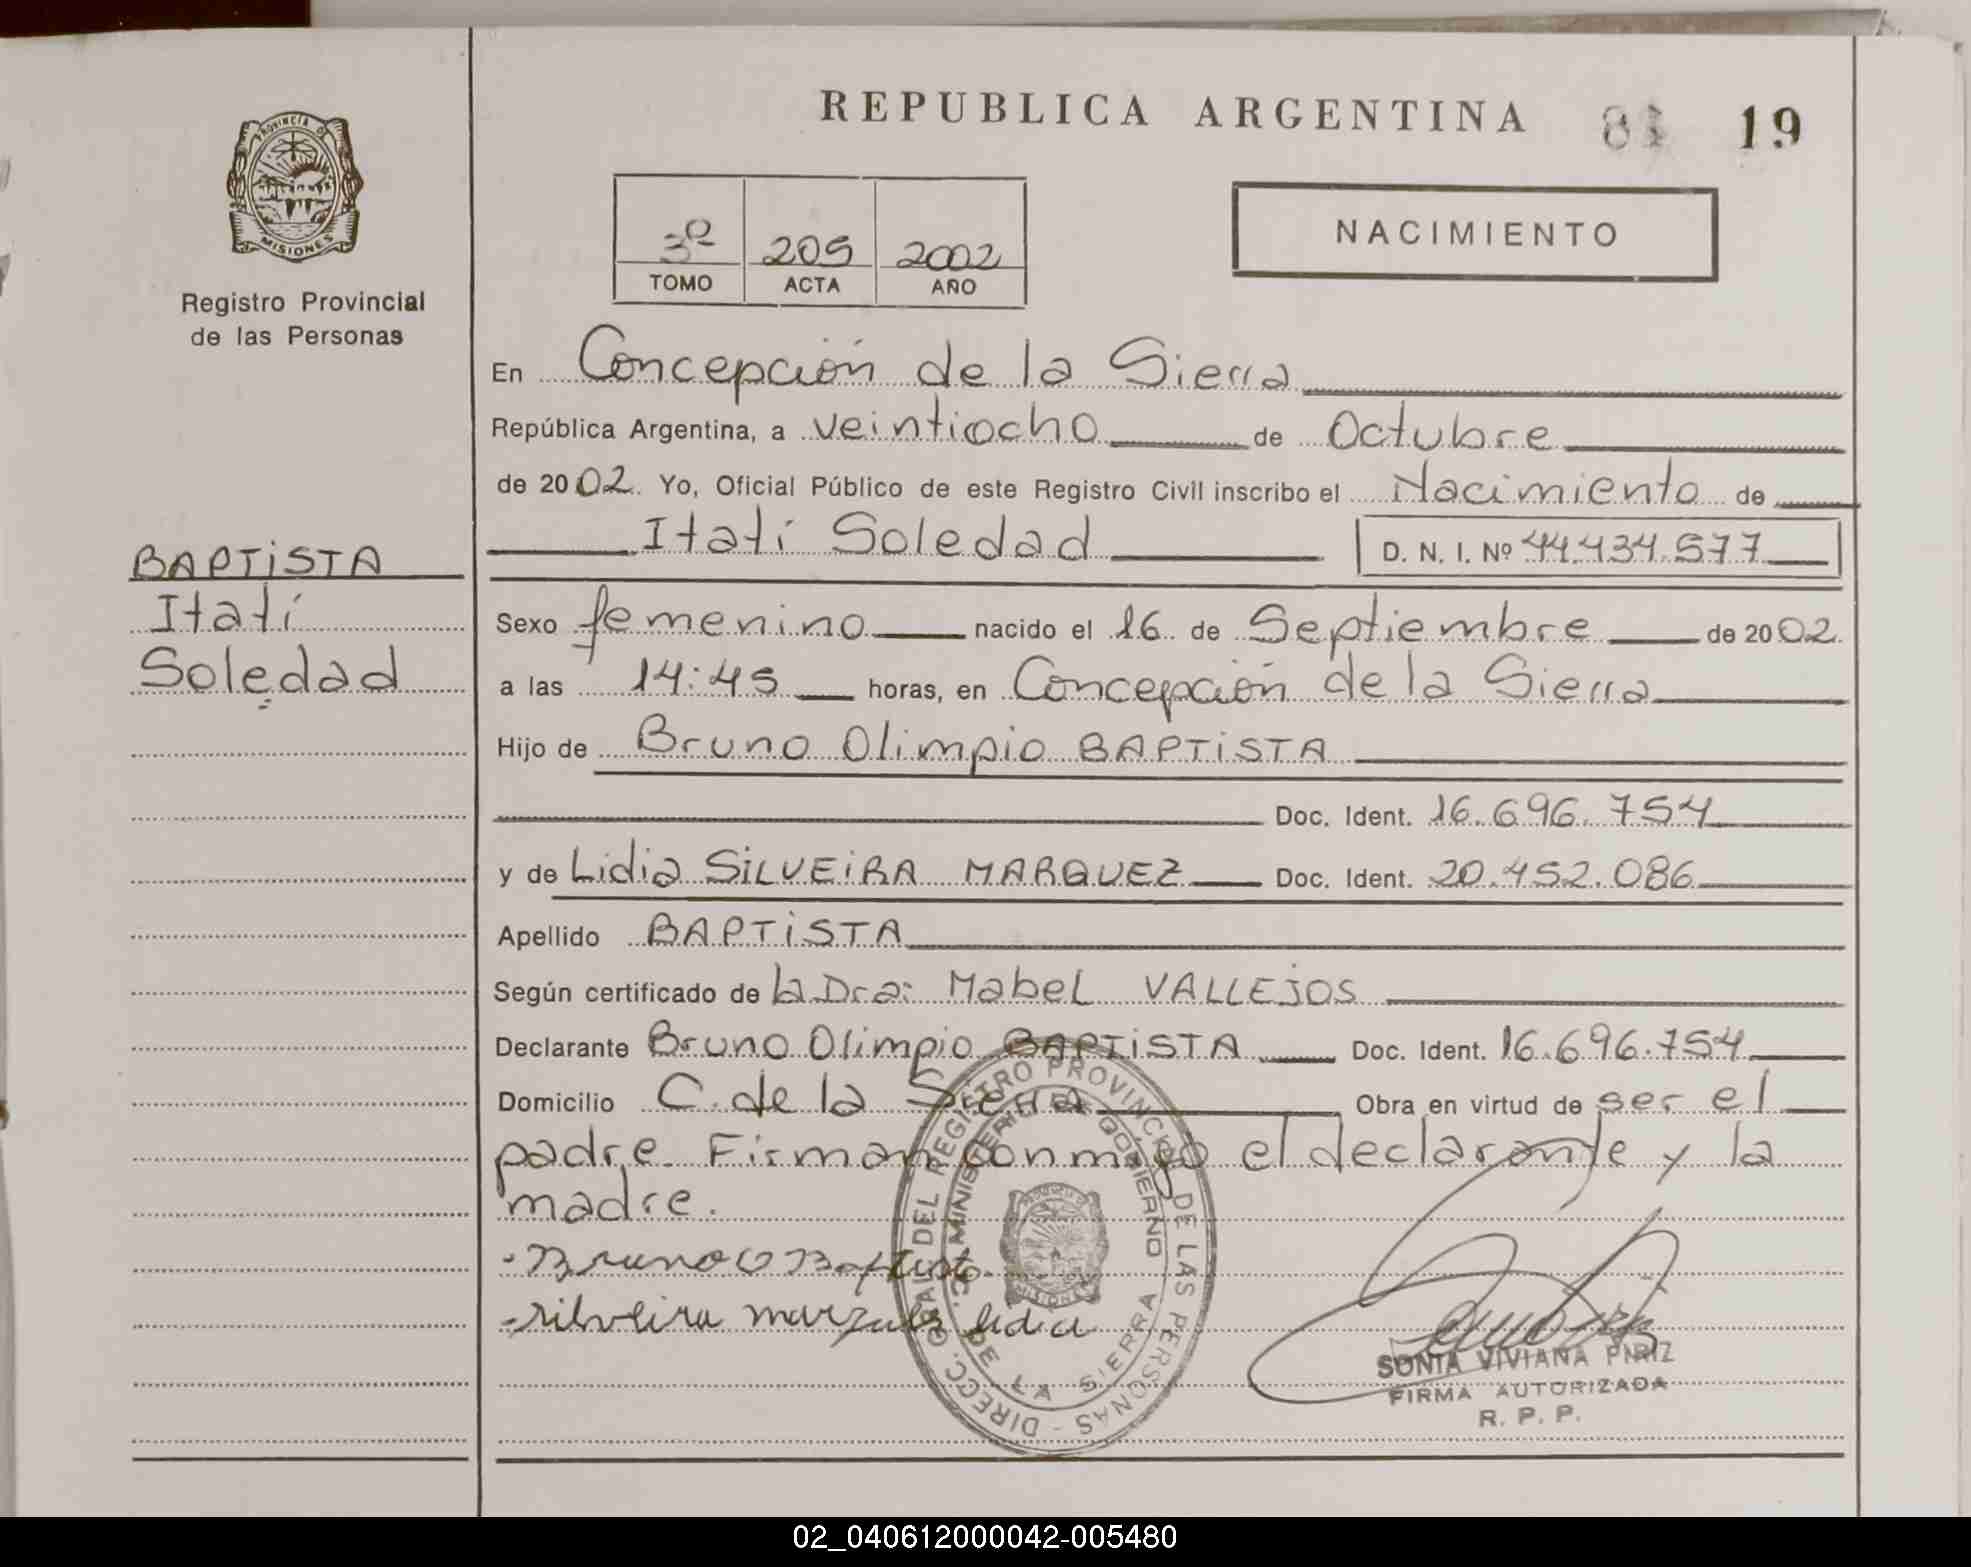 REPUBLICA ARGENTINA 19
PROVINCIA DE
MISIONES
Registro Provincial
de las Personas
NACIMIENTO
3º 205 2002
TOMO ACTA AÑO
En Concepción de la Sierra
República Argentina, a veintiocho de Octubre
de 2002. Yo, Oficial Público de este Registro Civil inscribo el Nacimiento de
Itatí Soledad D. N. I. Nº 44.434.577
BAPTiSTA
Itatí
Soledad
Sexo femenino nacido el 16 de Septiembre de 2002
a las 14:45 horas, en Concepción de la Sierra
Hijo de Bruno Olimpio BAPTiSTA
Doc. Ident. 16.696.754
y de Lidia SiLVEiRA MARQUEZ Doc. Ident. 20.452.086
Apellido BAPTiSTA
Según certificado de la Dra: MabeL VALLEJOS
Declarante Bruno Olimpio BAPTiSTA Doc. Ident. 16.696.754
Domicilio C. de la Sierra Obra en virtud de ser el
padre. Firman conmigo el declarante y la
madre.
Bruno O Baptista
silveira marquez lidia
DIRECC. GRAL DEL REGISTRO PROVINCIAL DE LAS PERSONAS -
MINISTERIO DE GOBIERNO
C. DE LA SIERRA
MISIONES
SONIA VIVIANA PIRIZ
FIRMA AUTORIZADA
R. P. P.
02_040612000042-005480